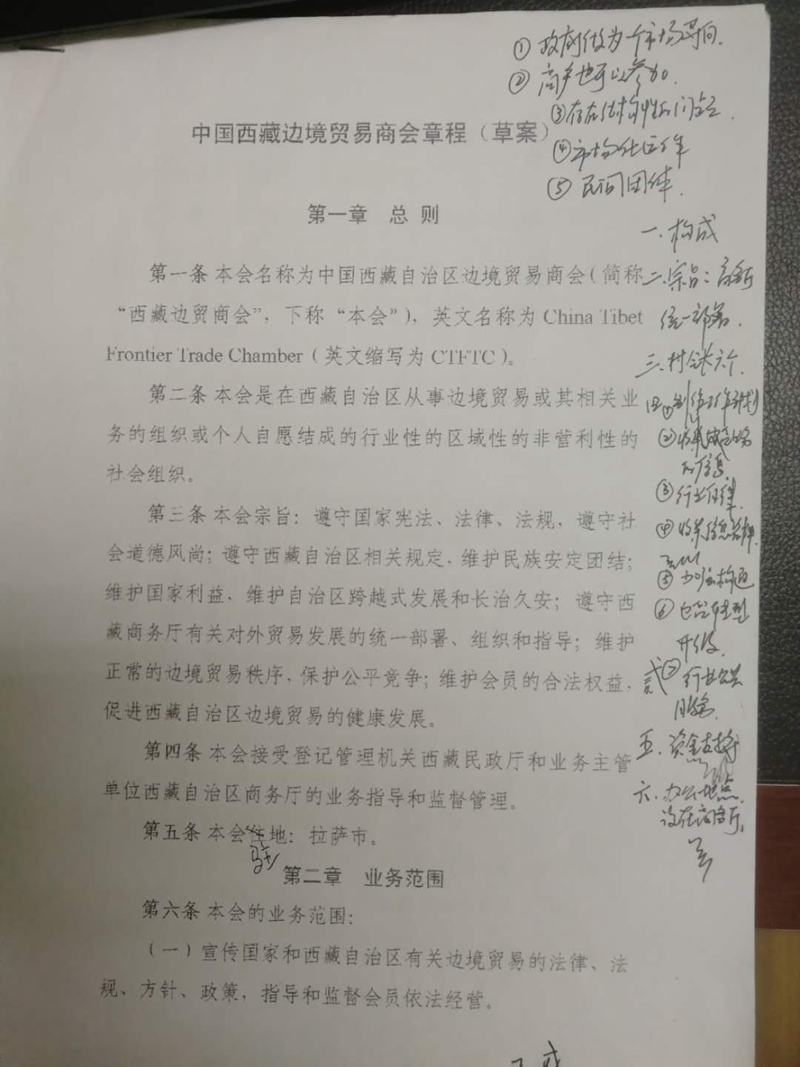 中国西藏边境贸易商会章程（草案）
第一章 总 则
第一条 本会名称为中国西藏自治区边境贸易商会（简称
“西藏边贸商会”，下称“本会”），英文名称为 China Tibet
Frontier Trade Chamber（英文缩写为 CTFTC）。
第二条 本会是在西藏自治区从事边境贸易或其相关业
务的组织或个人自愿结成的行业性的区域性的非营利性的
社会组织。
第三条 本会宗旨：遵守国家宪法、法律、法规，遵守社
会道德风尚；遵守西藏自治区相关规定，维护民族安定团结；
维护国家利益，维护自治区跨越式发展和长治久安；遵守西
藏商务厅有关对外贸易发展的统一部署、组织和指导；维护
正常的边境贸易秩序，保护公平竞争；维护会员的合法权益，
促进西藏自治区边境贸易的健康发展。
第四条 本会接受登记管理机关西藏民政厅和业务主管
单位西藏自治区商务厅的业务指导和监督管理。
第五条 本会住地：拉萨市。
驻
第二章 业务范围
第六条 本会的业务范围：
（一）宣传国家和西藏自治区有关边境贸易的法律、法
规、方针、政策，指导和监督会员依法经营。
① 做为一个市场导向
② 商户也可以参加.
③ 存在
④ 市场
⑤ 民间团体.
一. 构成
二. 宗旨：商务厅
统一部署.
三.
③ 行业自律
④ 收集信息
⑤ 沟通
⑥ 转型
升级.
⑦ 行业公共
服务.
五. 资金支持
六. 办公地点
设在商务厅.